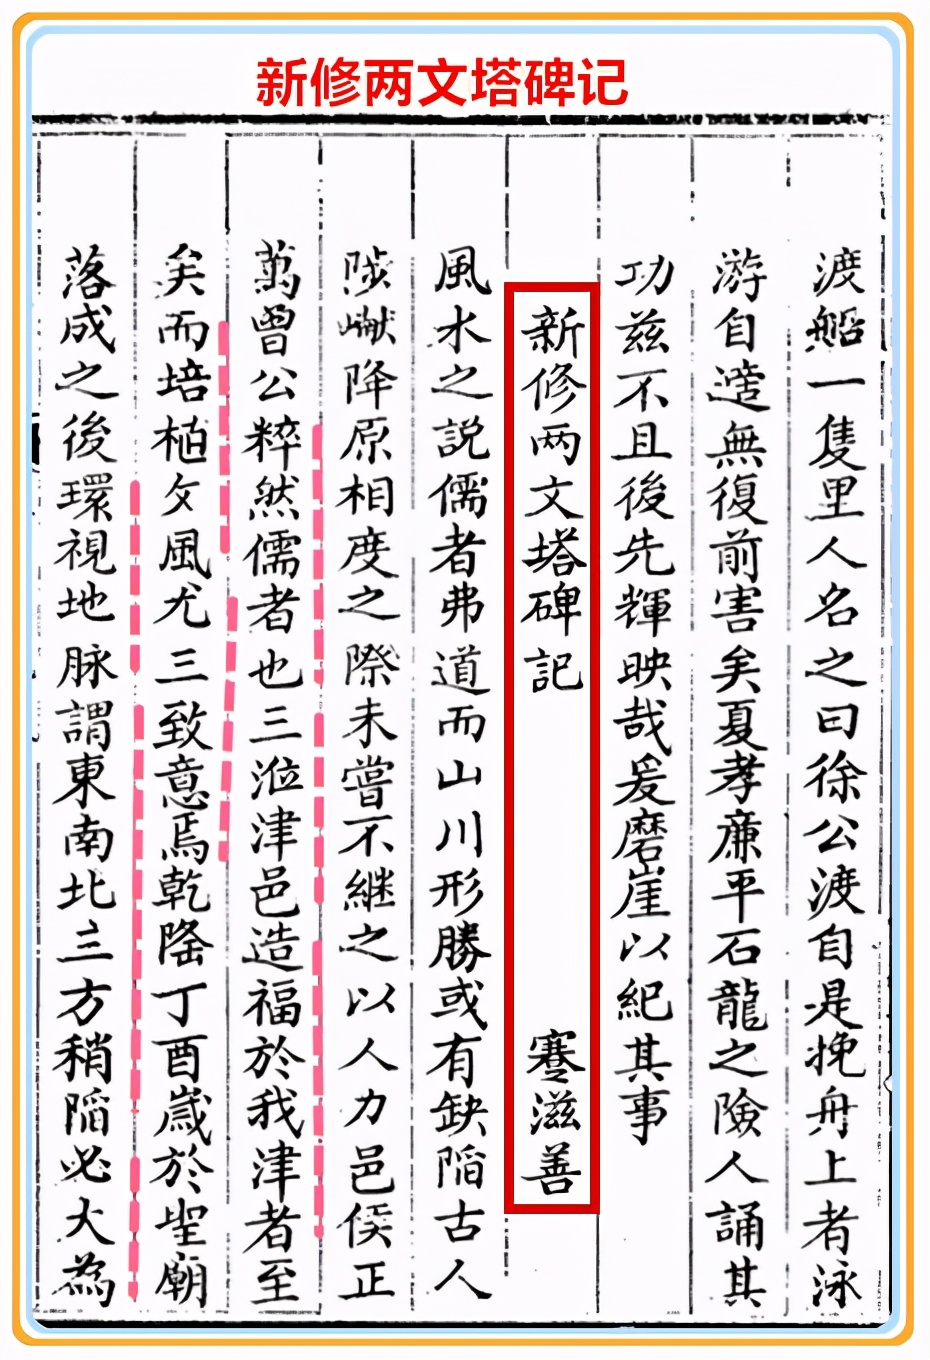 新修两文塔碑记
渡船一隻里人名之曰徐公渡自是挽舟上者泳
游自造無復前害矣夏孝廉平石龍之險人誦其
功兹不且後先輝映哉爰磨崖以紀其事
新修两文塔碑記 蹇滋善
風水之説儒者弗道而山川形勝或有缺陷古人
陟巘降原相度之際未嘗不継之以人力邑侯正
萬曾公粹然儒者也三涖津邑造福於我津者至
矣而培植文風尤三致意焉乾隆丁酉歲於聖廟
落成之後環視地脉謂東南北三方稍陷必大為